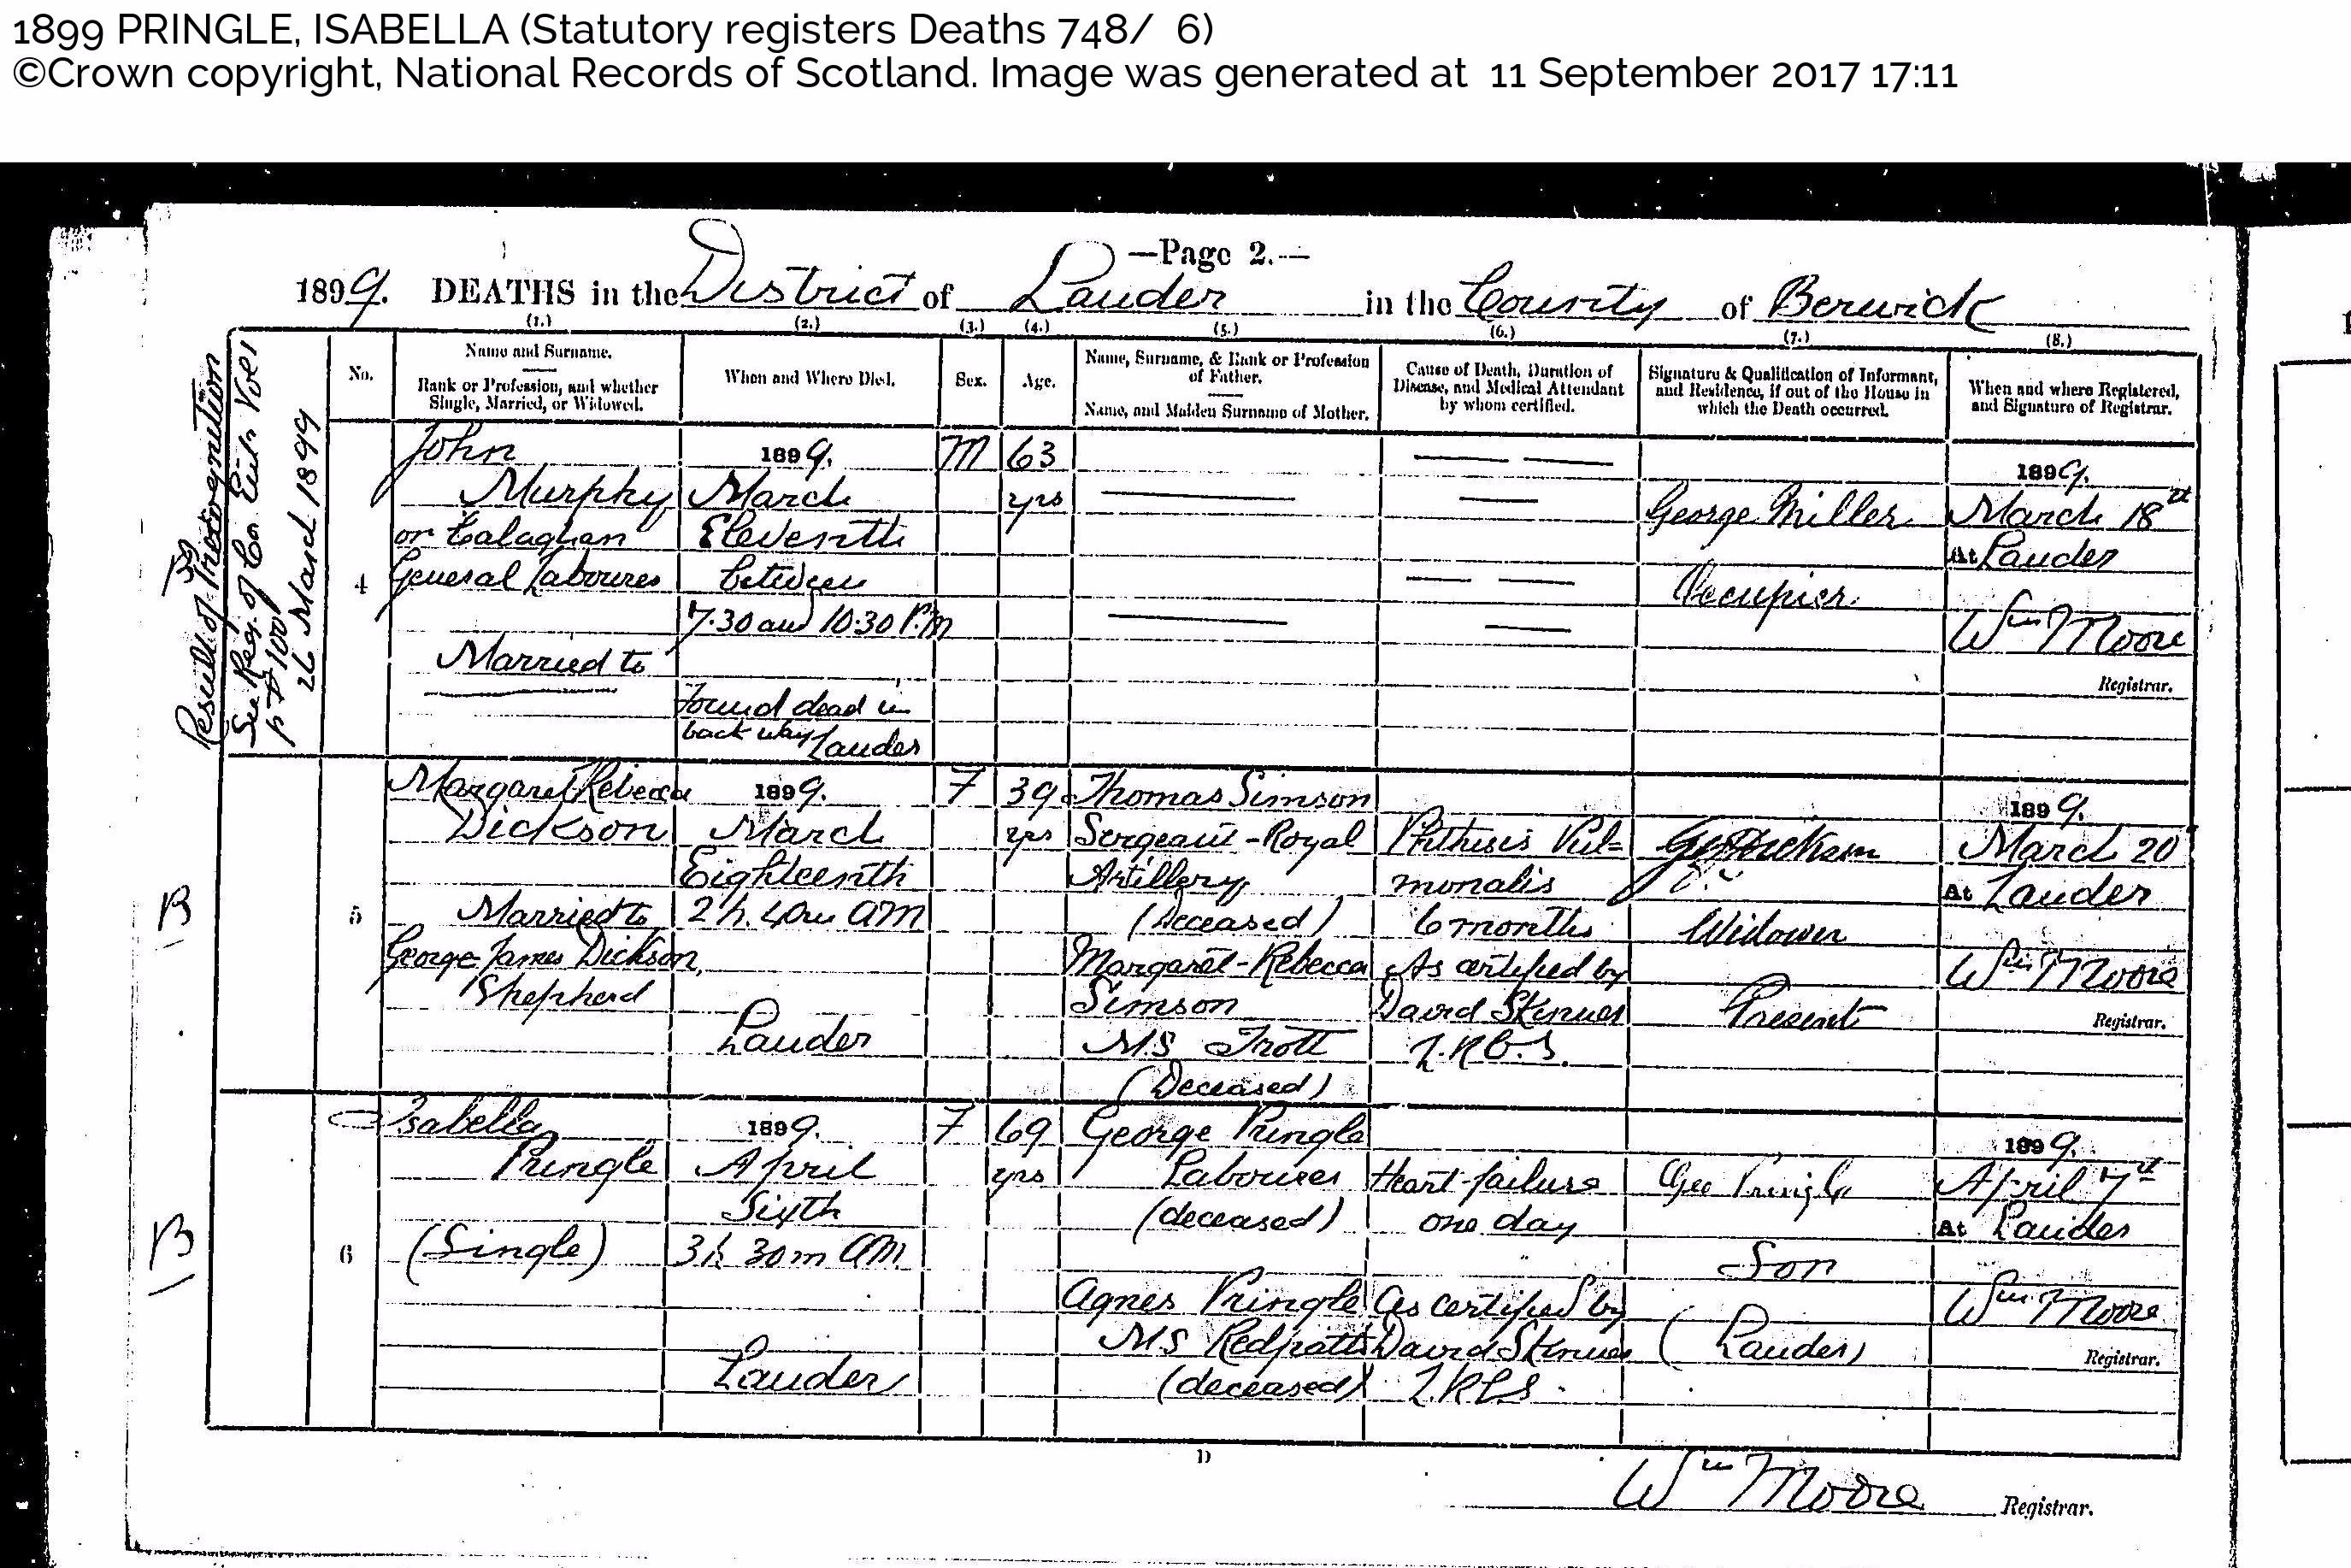 1899 PRINGLE, ISABELLA (Statutory registers Deaths 748/ 6)
©Crown copyright, National Records of Scotland. Image was generated at 11 September 2017 17:11
—Page 2.—
1899. DEATHS in the District of Lauder in the County of Berwick
(1.) (2.) (3.) (4.) (5.) (6.) (7.) (8.)
No.
Name and Surname.
Rank or Profession, and whether
Single, Married, or Widowed.
When and Where Died.
Sex.
Age.
Name, Surname, & Rank or Profession
of Father.
Name, and Maiden Surname of Mother.
Cause of Death, Duration of
Disease, and Medical Attendant
by whom certified.
Signature & Qualification of Informant,
and Residence, if out of the House in
which the Death occurred.
When and where Registered,
and Signature of Registrar.
B
Result of Precognition
See Reg. of Cor. Ent. Vol
p 100
26 March 1899
4
John
Murphy
or Calaghan
General Labourer
Married to
1899.
March
Eleventh
between
7.30 and 10.30 P.M
Found dead in
back way Lauder
M
63
yrs
George Miller
Occupier.
1899.
March 18th
At Lauder
Wm Moore
Registrar.
B
5
Margaret Rebecca
Dickson
Married to
George James Dickson,
Shepherd
1899.
March
Eighteenth
2h. 40m AM
Lauder
F
39
yrs
Thomas Simson
Sergeant-Royal
Artillery
(Deceased)
Margaret-Rebecca
Simson
MS Trott
(Deceased)
Phthisis Pul=
monalis
6 months
As certified by
David Skinner
L.R.C.S.
Dickson
Widower
Present
1899.
March 20
At Lauder
Wm Moore
Registrar.
B
6
Isabella
Pringle
(Single)
1899.
April
Sixth
3h 30m AM.
Lauder
F
69
yrs
George Pringle
Labourer
(deceased)
Agnes Pringle
MS Redpath
(deceased)
Heart-failure
one day
As certified by
David Skinner
L.R.C.S.
Geo Pringle
Son
(Lauder)
1899.
April 7th
At Lauder
Wm Moore
Registrar.
D
Wm Moore Registrar.